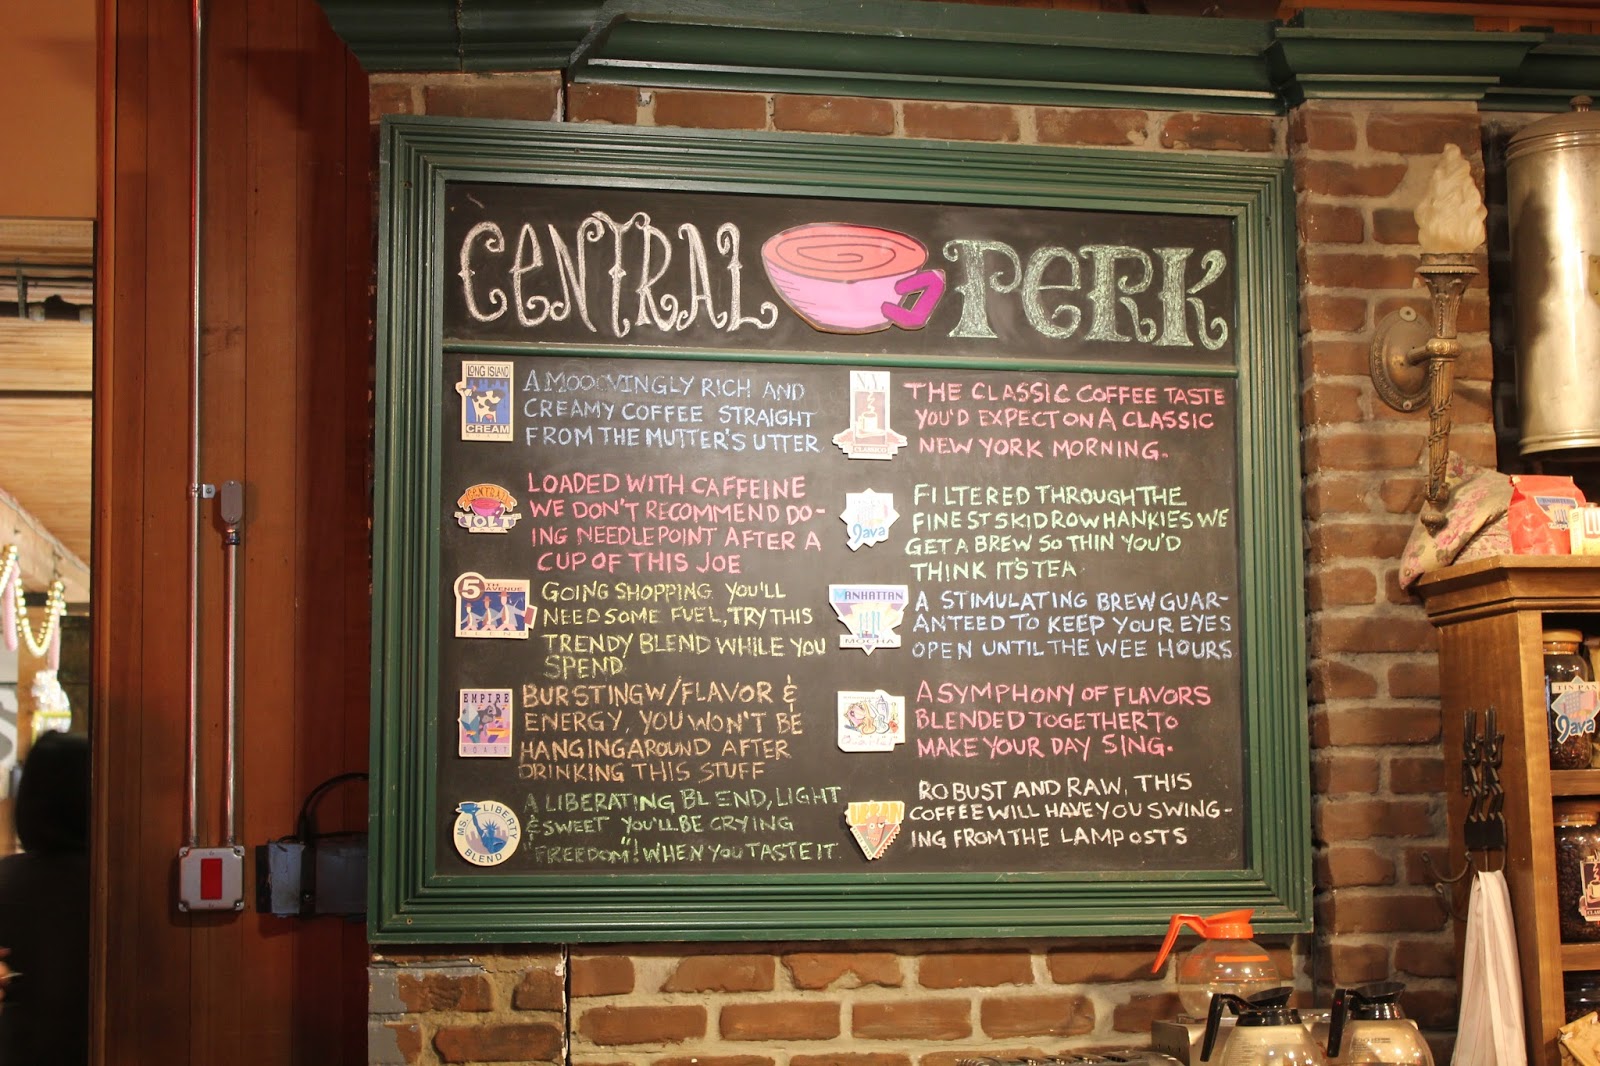 CENTRAL PERK
LONG ISLAND
CREAM
A MOOOVINGLY RICH AND
CREAMY COFFEE STRAIGHT
FROM THE MUTTER'S UTTER
CENTRAL
JOLT
JAVA
LOADED WITH CAFFEINE
WE DON'T RECOMMEND DO-
ING NEEDLEPOINT AFTER A
CUP OF THIS JOE
5TH AVENUE
BLEND
GOING SHOPPING. YOU'LL
NEED SOME FUEL, TRY THIS
TRENDY BLEND WHILE YOU
SPEND.
EMPIRE
ROAST
BURSTING W/FLAVOR &
ENERGY, YOU WON'T BE
HANGING AROUND AFTER
DRINKING THIS STUFF
MS. LIBERTY
BLEND
A LIBERATING BLEND, LIGHT
& SWEET YOU'LL BE CRYING
"FREEDOM"! WHEN YOU TASTE IT.
N.Y.
CLASSICO
THE CLASSIC COFFEE TASTE
YOU'D EXPECT ON A CLASSIC
NEW YORK MORNING.
Java
FILTERED THROUGH THE
FINEST SKID ROW HANKIES WE
GET A BREW SO THIN YOU'D
THINK IT'S TEA
MANHATTAN
MOCHA
A STIMULATING BREW GUAR-
ANTEED TO KEEP YOUR EYES
OPEN UNTIL THE WEE HOURS
A SYMPHONY OF FLAVORS
BLENDED TOGETHER TO
MAKE YOUR DAY SING.
URBAN
ROBUST AND RAW, THIS
COFFEE WILL HAVE YOU SWING-
ING FROM THE LAMP OSTS
TIN PAN
Java